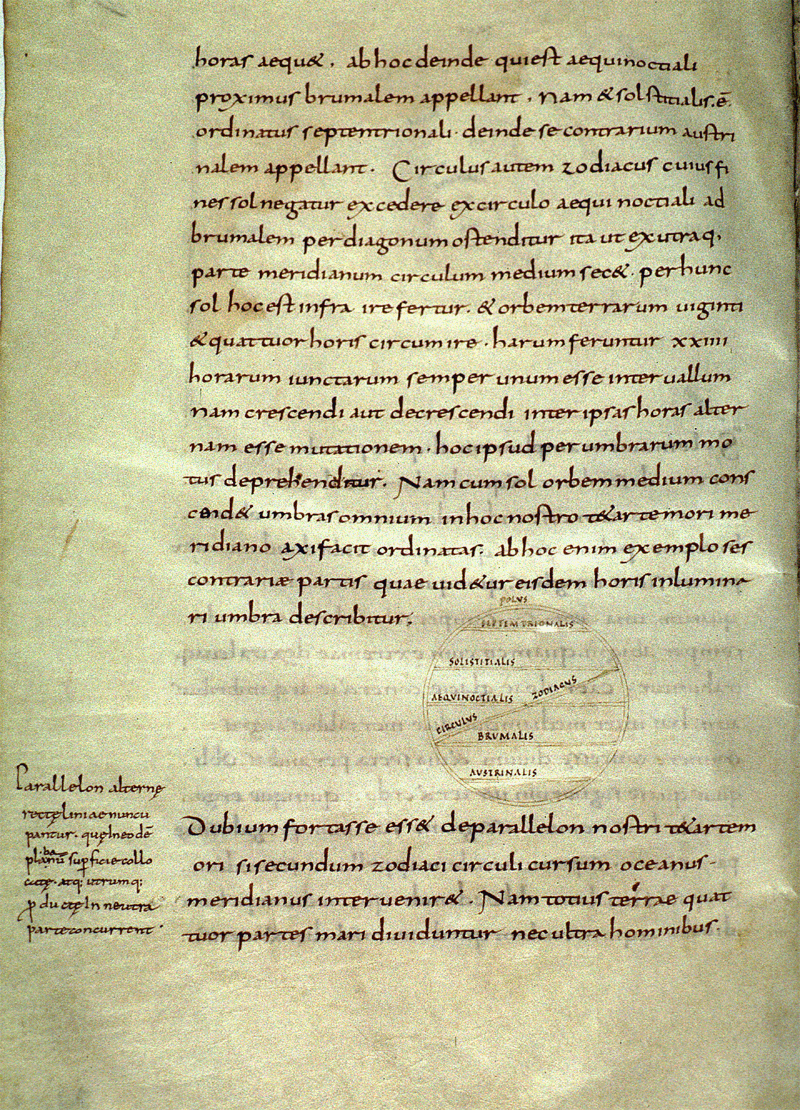 horas aequ&. ab hoc deinde qui est aequinoctiali
proximus brumalem appellant. Nam & solstitialis. ē
ordinatus septentrionali. deinde se contrarium austri
nalem appellant. Circulus autem zodiacus cuius fi
nes sol negatur excedere ex circulo aequinoctiali ad
brumalem per diagonum ostenditur ita ut ex utraq,
parte meridianum circulum medium sec&. per hunc
sol hoc est infra ire fertur. & orbem terrarum uiginti
& quattuor horis circumire. harum feruntur xxiiii
horarum iunctarum semper unum esse interuallum
nam crescendi aut decrescendi inter ipsas horas alter
nam esse mutationem. hoc ipsud per umbrarum mo
tus deprehenditur. Nam cum sol orbem medium cons
cend& umbras omnium in hoc nostro t&artemori me
ridiano axi facit ordinatas. ab hoc enim exemplo ses
contrariae partis quae uid&ur eisdem horis inlumina
ri umbra describitur.
POLUS
SEPTEMTRIONALIS
SOLISTITIALIS
AEQUINOCTIALIS ZODIACUS
CIRCULUS
BRUMALIS
AUSTRINALIS
Parallelon alternę
rectę liniae nuncu
pantur. quę in eodē
planū suꝑficie collo
catę. atq; utrumq;
ꝓductę in neutra
parte concurrent
Dubium fortasse ess& de parallelon nostri t&artem
ori si secundum zodiaci circuli cursum oceanus
meridianus interuenir&. Nam totius terrae quat
tuor partes mari diuiduntur nec ultra hominibus.